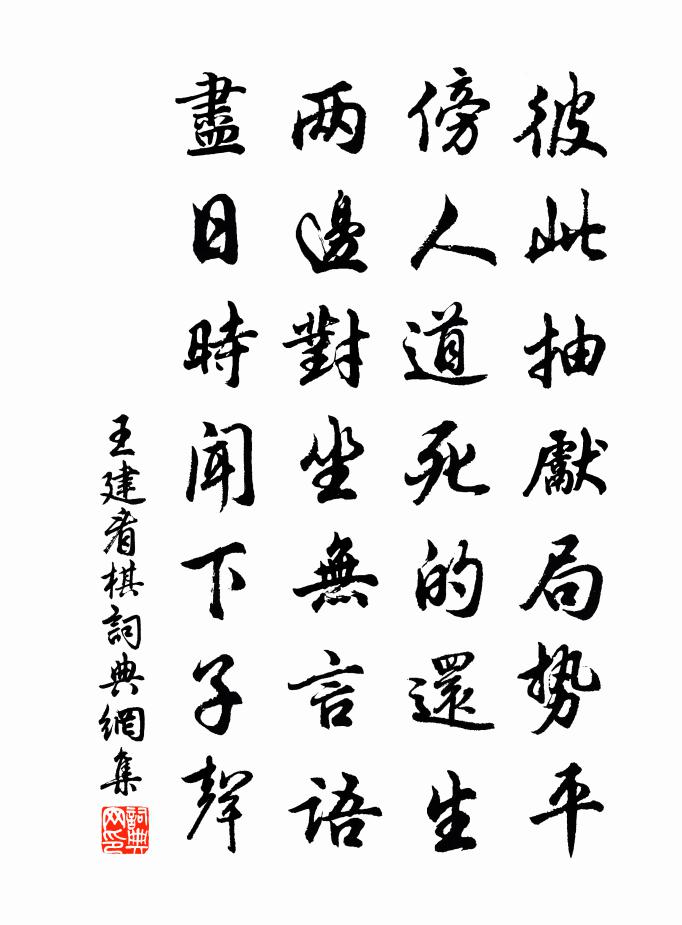 彼此抽獻局势平
傍人道死的還生
两邊對坐無言語
盡日時聞下子聲
王建看棋詞典網集
詞典网印